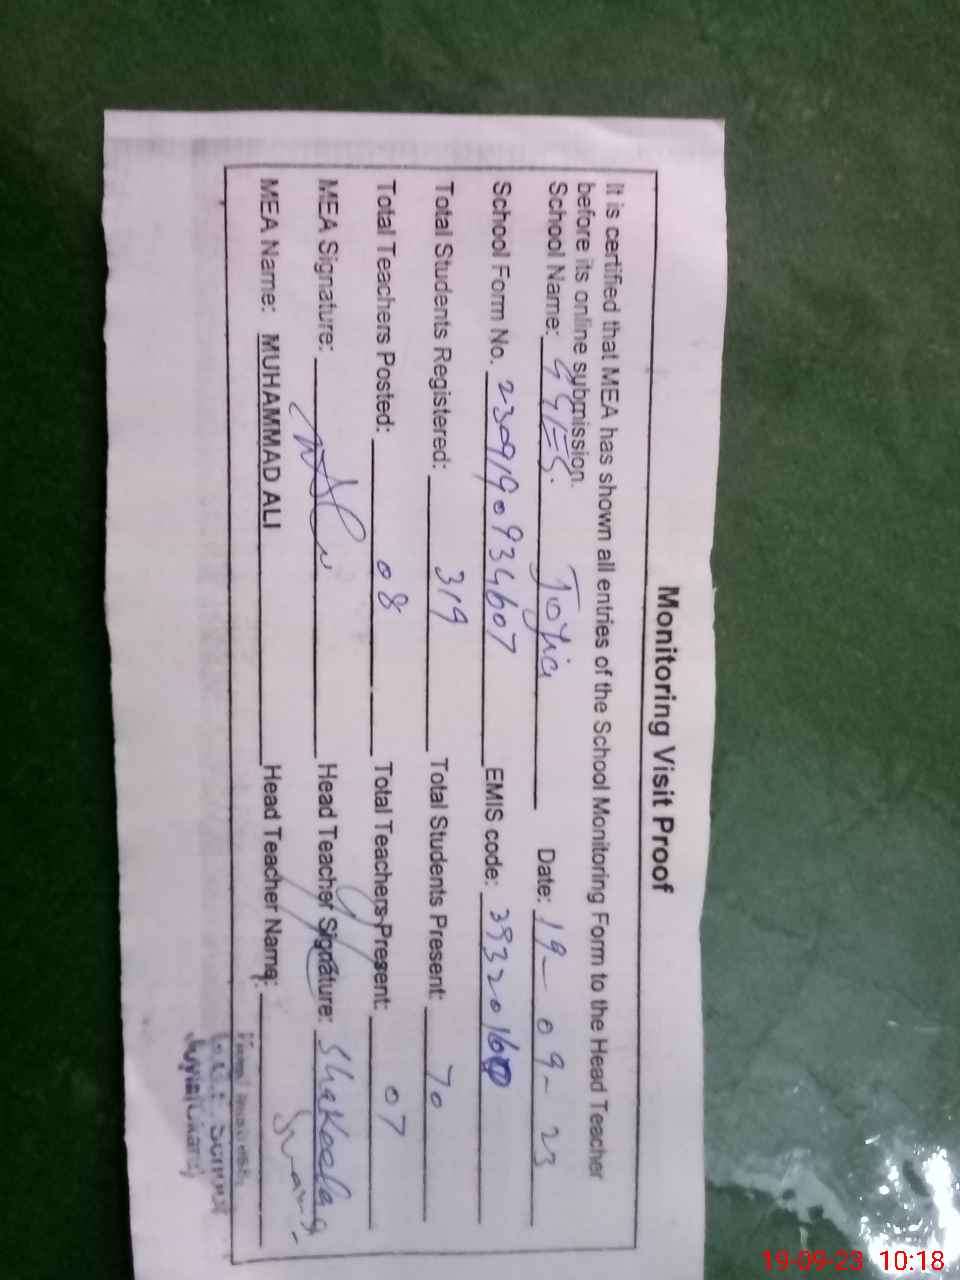 Monitoring Visit Proof
It is certified that MEA has shown all entries of the School Monitoring Form to the Head Teacher
before its online submission.
School Name: GGES. Date: 19-09-23
School Form No. 2309190934607 EMIS code:
Total Students Registered: 319 Total Students Present: 70
Total Teachers Posted: 08 Total Teachers Present: 07
MEA Signature: Head Teacher Signature: Shakeela
MEA Name: MUHAMMAD ALI Head Teacher Name:
19-09-23 10:18